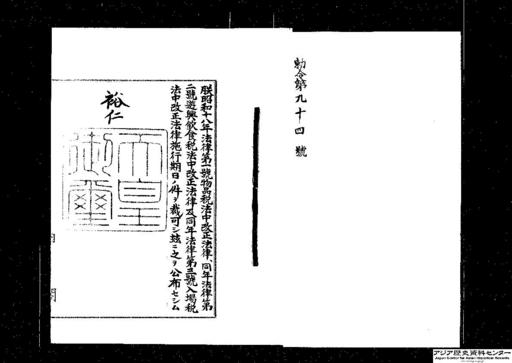 勅令第九十四號
朕昭和十八年法律第一號物品税法中改正法律、同年法律第
二號遊興飲食税法中改正法律及同年法律第三號入場税
法中改正法律施行期日ノ件ヲ裁可シ茲ニ之ヲ公布セシム
裕仁
天皇
御璽
アジア歴史資料センター
Japan Center for Asian Historical Records